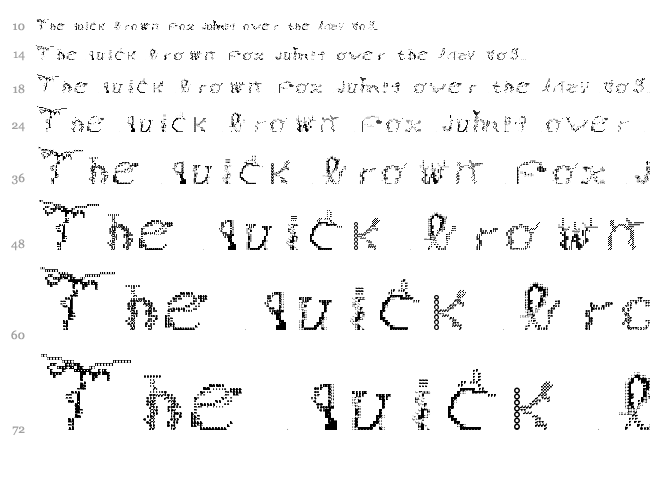 10 The quick brown fox jumps over the lazy dog.
14 The quick brown fox jumps over the lazy dog.
18 The quick brown fox jumps over the lazy dog.
24 The quick brown fox jumps over
36 The quick brown fox j
48 The quick brown
60 The quick bro
72 The quick b